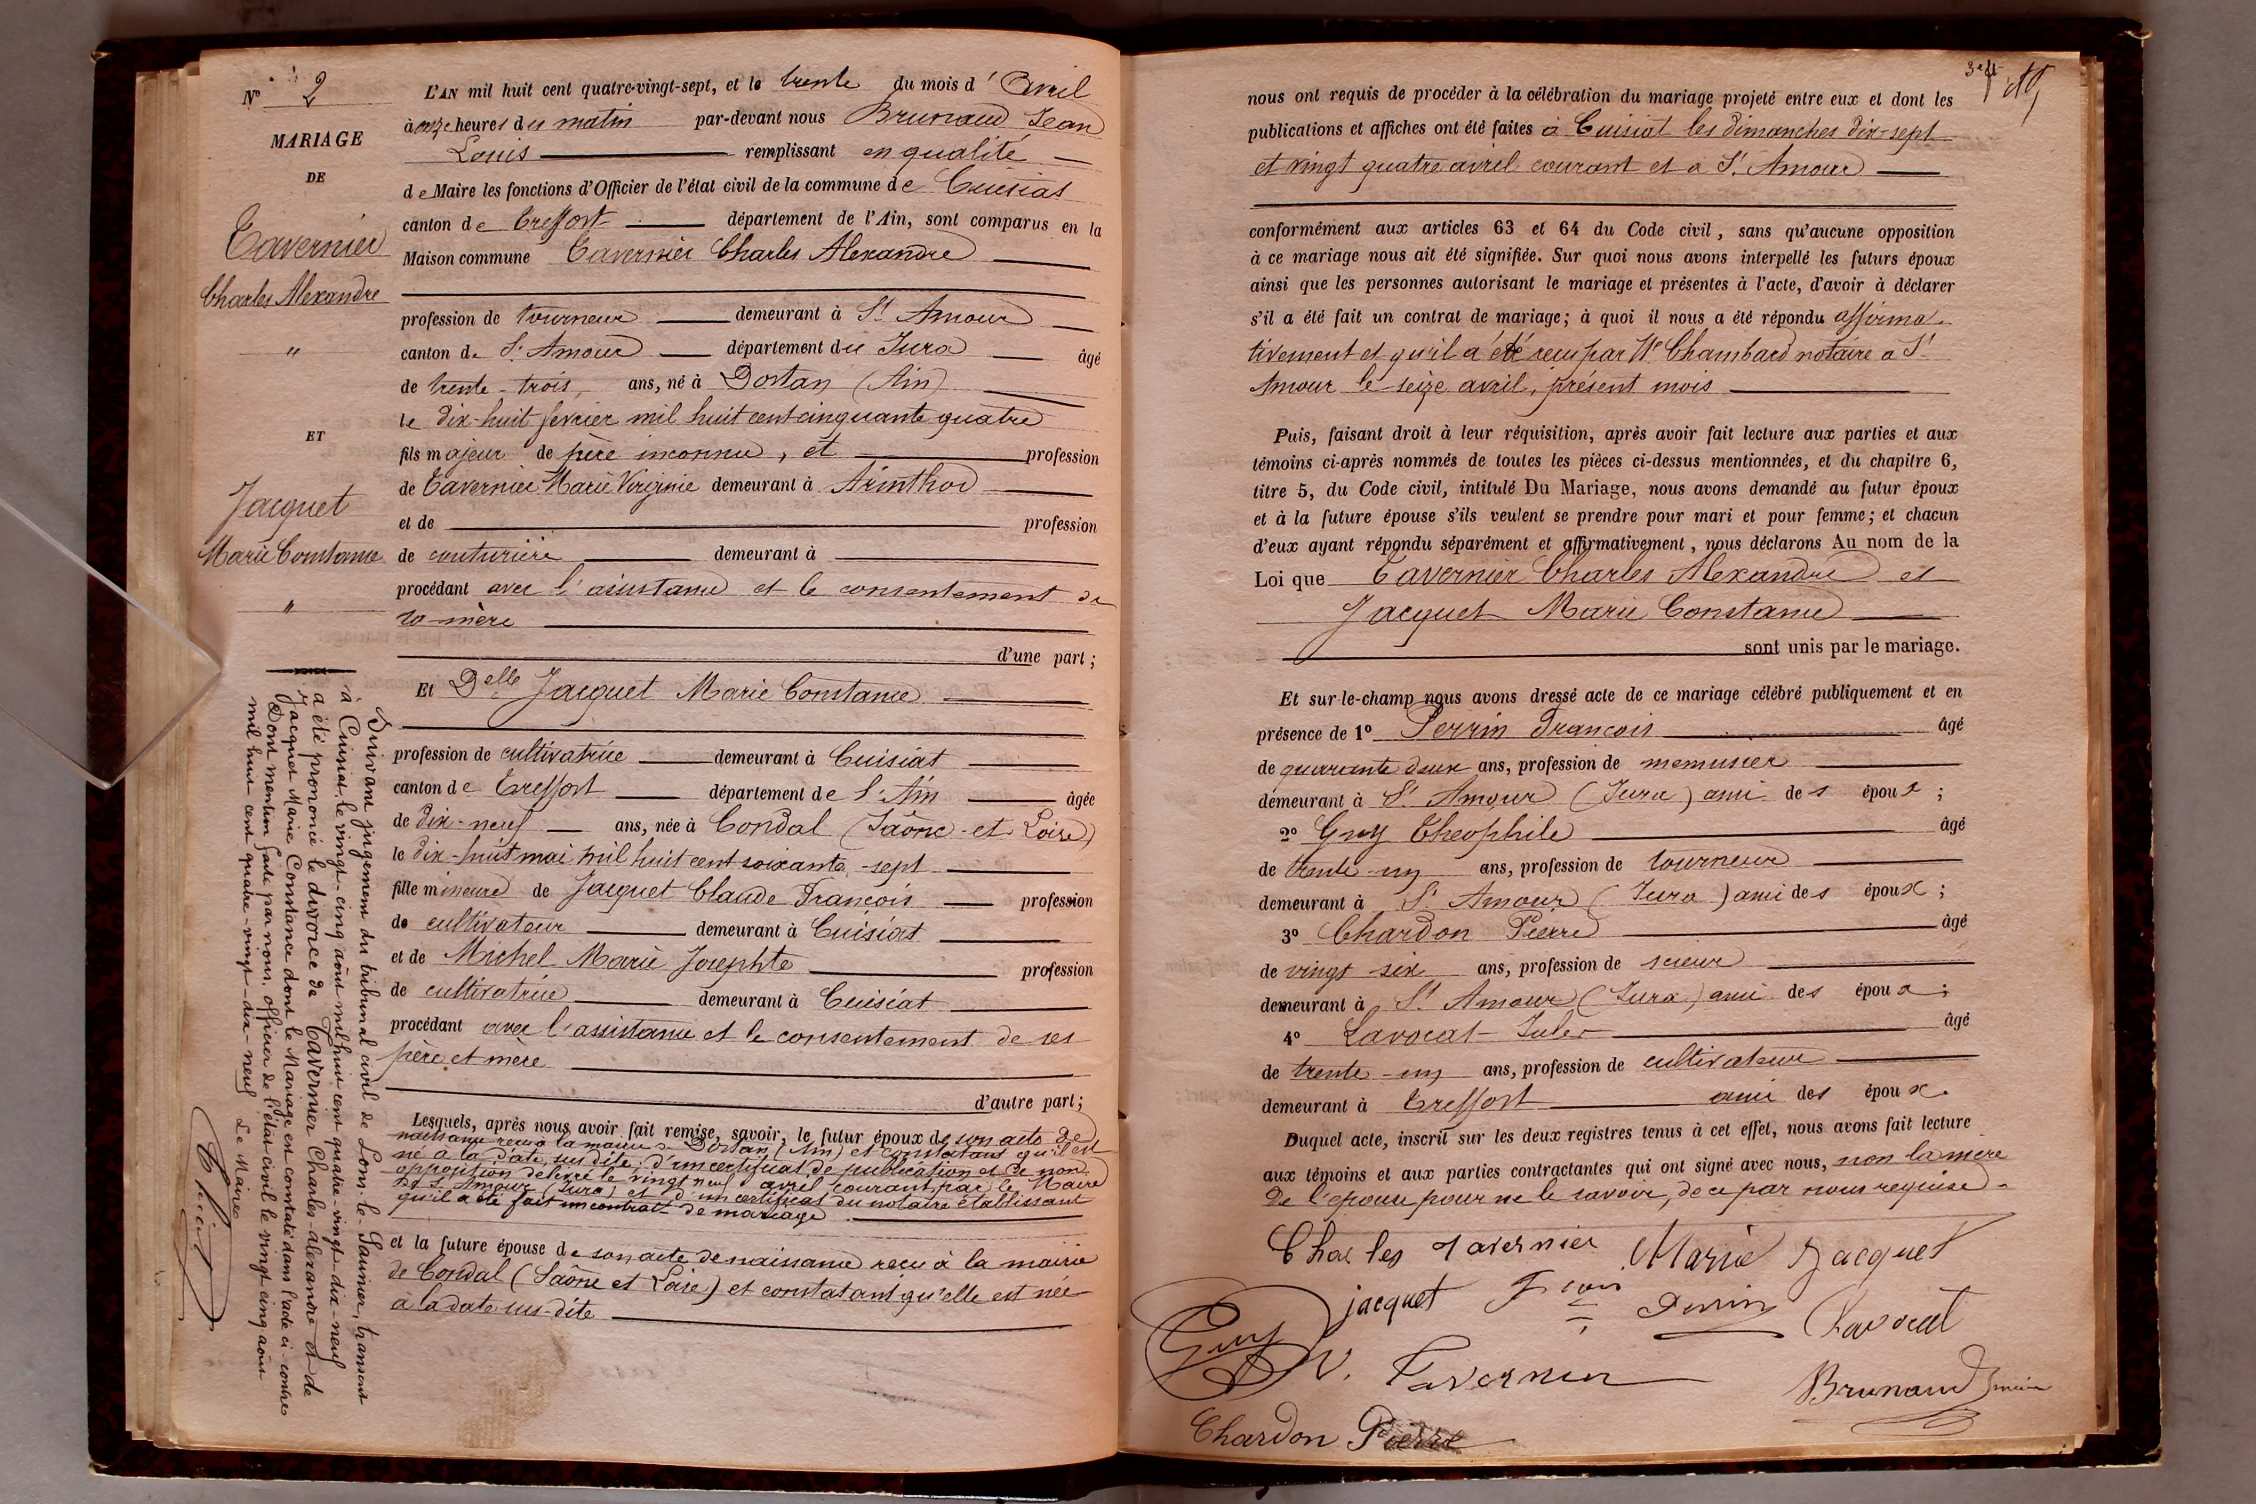 N° 2
MARIAGE
DE
Tavernier
Charles Alexandre
"
ET
Jacquet
Marie Constance
"
Suivant jugement du tribunal civil de Lons-le-Saunier, transcrit
à Cuisiat, le vingt-cinq août mil huit cent quatre-vingt-dix-neuf
a été prononcé le divorce de Tavernier Charles-alexandre et de
Jacquet Marie Constance dont le Mariage est constaté dans l'acte ci-contre
Dont mention faite par nous, officier de l'état-civil le vingt cinq août
mil huit cent quatre-vingt-dix-neuf Le Maire
L'AN mil huit cent quatre-vingt-sept, et le trente du mois d'Avril
à onze heures du matin par-devant nous Brunaud Jean
Louis remplissant en qualité
de Maire les fonctions d'Officier de l'état civil de la commune de Cuisiat
canton de Treffort département de l'Ain, sont comparus en la
Maison commune Tavernier Charles Alexandre
profession de tourneur demeurant à St Amour
canton de St Amour département du Jura âgé
de trente-trois ans, né à Dortan (Ain)
le dix-huit fevrier mil huit cent cinquante quatre
fils majeur de père inconnu, et profession
de Tavernier Marie Virginie demeurant à Arinthod
et de profession
de couturière demeurant à
procédant avec l'assistance et le consentement de
sa mère
d'une part;
Et Delle Jacquet Marie Constance
profession de cultivatrice demeurant à Cuisiat
canton de Treffort département de l'Ain âgée
de dix-neuf ans, née à Condal (Saône-et-Loire)
le dix-huit mai mil huit cent soixante-sept
fille mineure de Jacquet Claude François profession
de cultivateur demeurant à Cuisiat
et de Michel Marie Josephte profession
de cultivatrice demeurant à Cuisiat
procédant avec l'assistance et le consentement de ses
père et mère
d'autre part;
Lesquels, après nous avoir fait remise, savoir, le futur époux de son acte de
naissance reçu à la mairie de Dortan (Ain) et constatant qu'il est
né à la date sus dite; d'un certificat de publication et de non
opposition délivré le vingt neuf avril courant par le Maire
de St Amour (Jura) et d'un certificat du notaire établissant
qu'il a été fait un contrat de mariage
et la future épouse de son acte de naissance reçu à la mairie
de Condal (Saône et Loire) et constatant qu'elle est née
à la date sus-dite
nous ont requis de procéder à la célébration du mariage projeté entre eux et dont les
publications et affiches ont été faites à Cuisiat les dimanches dix-sept
et vingt quatre avril courant et a St Amour
conformément aux articles 63 et 64 du Code civil, sans qu'aucune opposition
à ce mariage nous ait été signifiée. Sur quoi nous avons interpellé les futurs époux
ainsi que les personnes autorisant le mariage et présentes à l'acte, d'avoir à déclarer
s'il a été fait un contrat de mariage; à quoi il nous a été répondu affirma-
tivement et qu'il a été reçu par Me Chambard notaire a St
Amour le seize avril, présent mois
Puis, faisant droit à leur réquisition, après avoir fait lecture aux parties et aux
témoins ci-après nommés de toutes les pièces ci-dessus mentionnées, et du chapitre 6,
titre 5, du Code civil, intitulé Du Mariage, nous avons demandé au futur époux
et à la future épouse s'ils veulent se prendre pour mari et pour femme; et chacun
d'eux ayant répondu séparément et affirmativement, nous déclarons Au nom de la
Loi que Tavernier Charles Alexandre et
Jacquet Marie Constance
sont unis par le mariage.
Et sur-le-champ nous avons dressé acte de ce mariage célébré publiquement et en
présence de 1° Perrin François âgé
de quarante deux ans, profession de menuisier
demeurant à St Amour (Jura) ami des époux;
2° Guy Theophile âgé
de trente-un ans, profession de tourneur
demeurant à St Amour (Jura) ami des époux;
3° Chardon Pierre âgé
de vingt-six ans, profession de scieur
demeurant à St Amour (Jura) ami des époux;
4° Lavocat Jules âgé
de trente-un ans, profession de cultivateur
demeurant à Treffort ami des époux.
Duquel acte, inscrit sur les deux registres tenus à cet effet, nous avons fait lecture
aux témoins et aux parties contractantes qui ont signé avec nous, non la mère
de l'épouse pour ne le savoir, de ce par nous requise.
Charles Tavernier Marie Jacquet
jacquet Perrin Lavocat
Guy V. Tavernier
Brunaud maire
Chardon Pierre